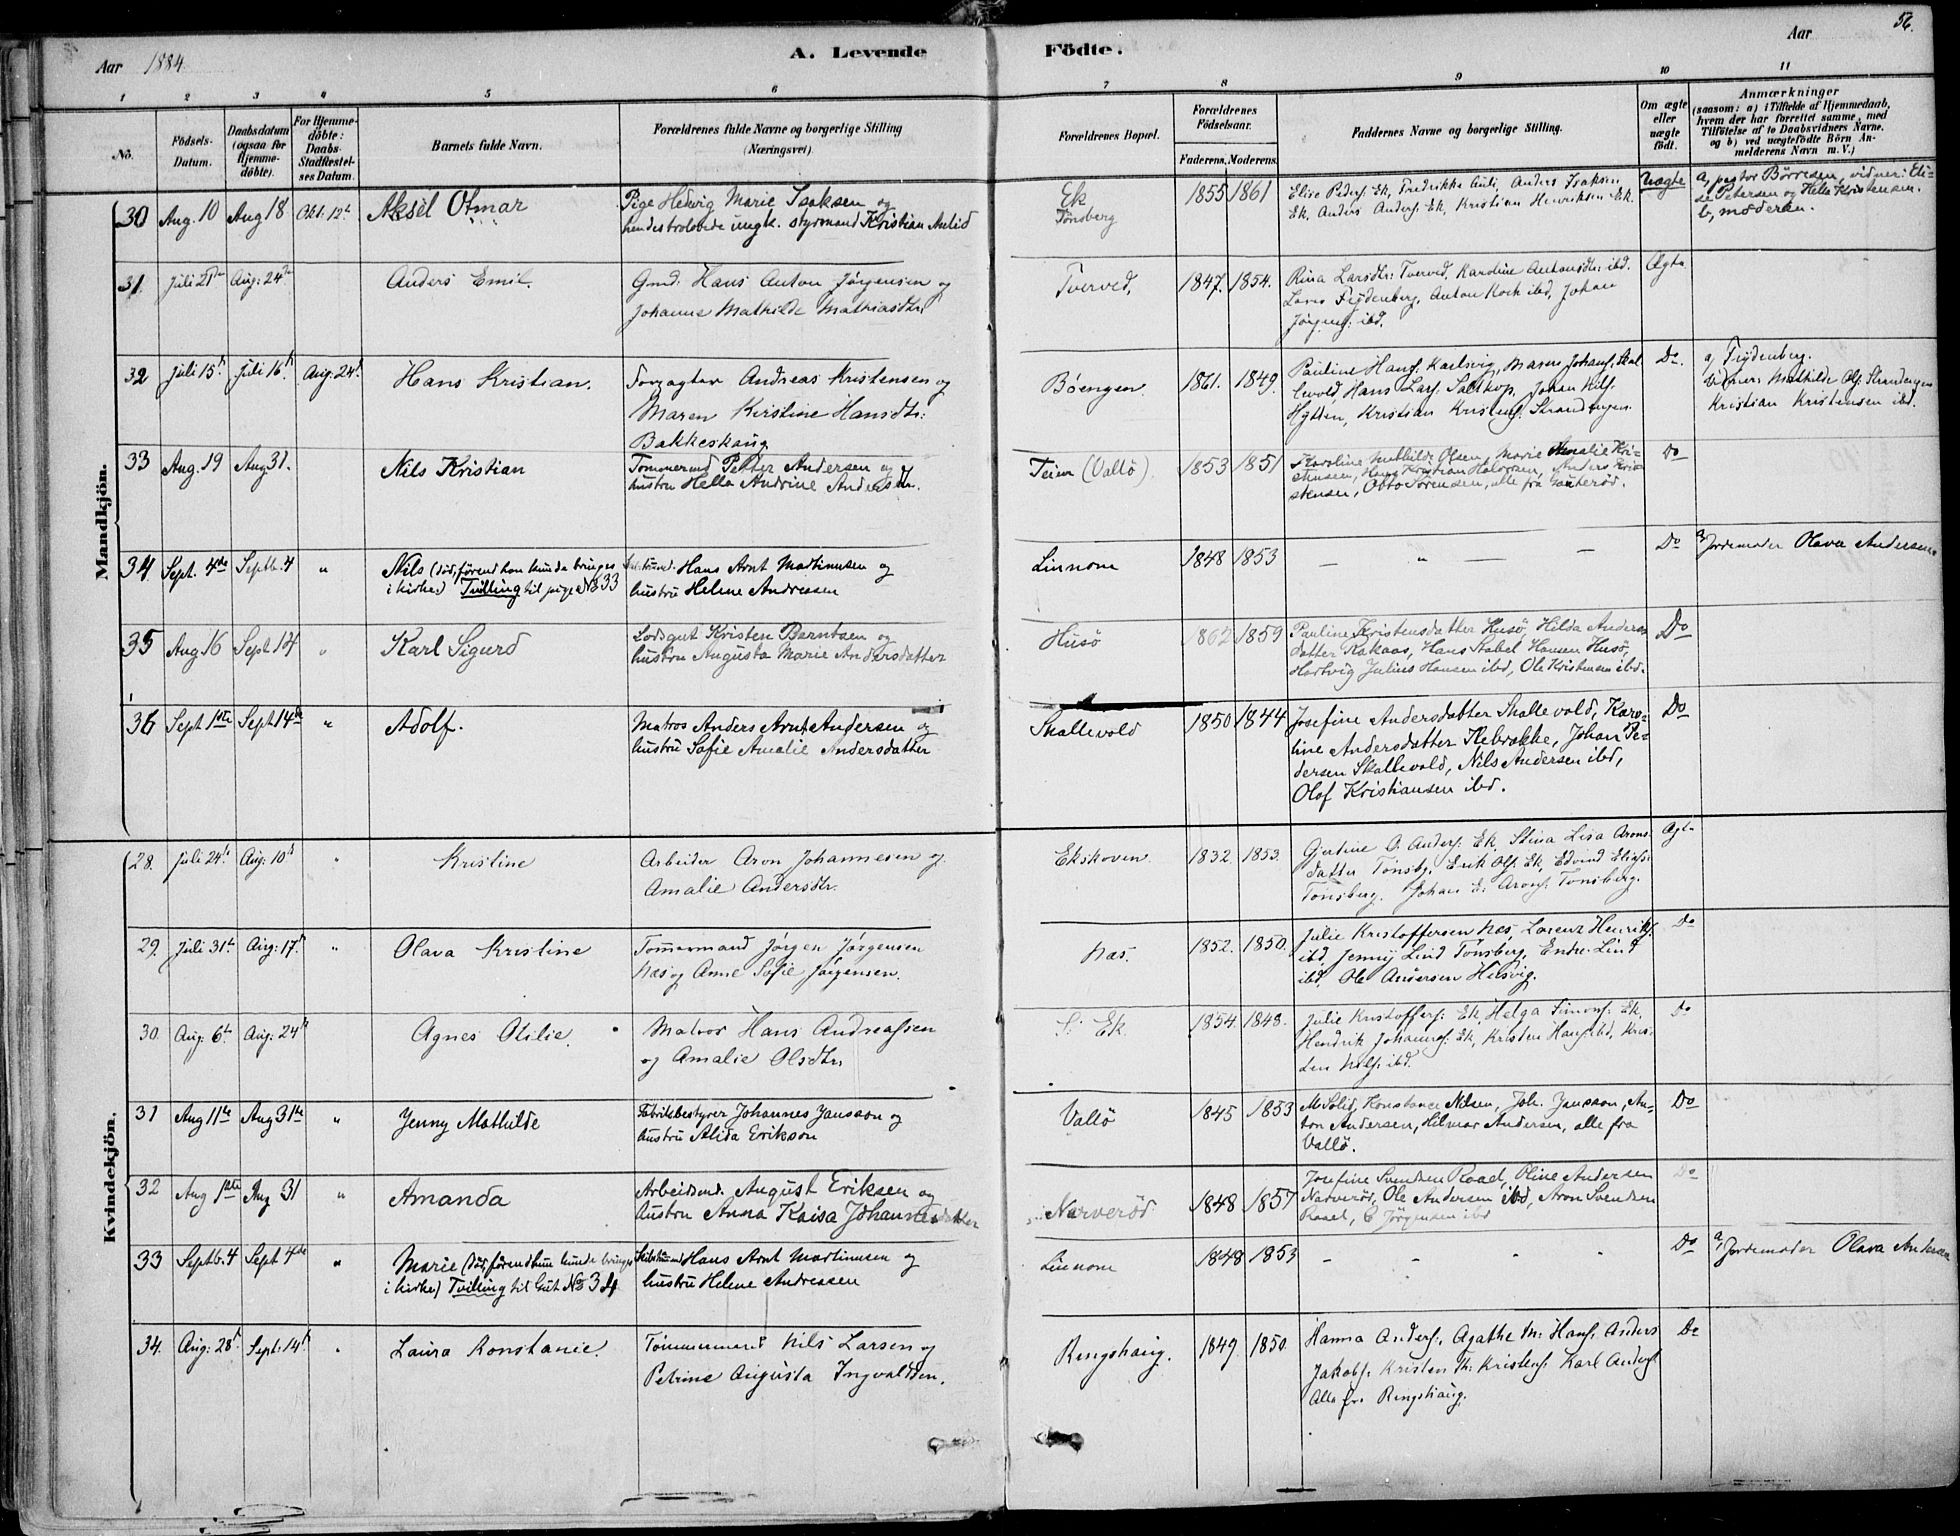 56.
Aar 1884.
A. Levende Födte.
Aar
1 2 3 4 5 6 7 8 9 10 11
No.
Födsels-Datum.
Daabsdatum (ogsaa for Hjemmedöbte).
For Hjemmedöbte: Daabs-Stadfæstelses Datum.
Barnets fulde Navn.
Forældrenes fulde Navne og borgerlige Stilling (Næringsvei).
Forældrenes Bopæl.
Forældrenes Födselsaar.
Faderens. Moderens.
Faddernes Navne og borgerlige Stilling.
Om ægte eller uægte födt.
Anmærkninger
(saasom: a) i Tilfælde af Hjemmedaab, hvem der har forrettet samme, med Tilföielse af to Daabsvidners Navne. og b) ved uægtefödte Börn Anmelderens Navn m. V.)
Mandkjön.
30 Aug. 10 Aug 18 Okt. 12te Aksel Otmar
Pige Helvig Marie Isaksen og
hendes trolovede ungk. styrmand Kristian Aulid
Ek
Tönsberg
1855 1861
Elise Peders. Ek, Fredrikke Auli, Anders Isaksen
Ek, Anders Anders. Ek, Kristian Henriksen Ek.
Uægte
a, pastor Börresen, vidner: Eli-
se Petersen og Helle Kristensen.
b, moderen.
31. Juli 21de Aug: 24de Anders Emil.
Gmd: Hans Anton Jörgensen og
Johanne Mathilde Mathiasdtr:
Tverved, 1847. 1854.
Rina Larsdtr: Tverved, Karoline Antonsdtr: ibd.
Lars Frydenberg, Anton Koch ibd, Johan
Jörgens: ibd.
Ægte
32 Juli 15de Juli 16de Aug. 24de Hans Kristian.
Forpagter Andreas Kristensen og
Maren Kirstine Hansdtr:
Bakkeskaug
Böengen. 1861. 1849.
Pauline Hans: Karlsvig, Maren Johans. Skal-
levold, Hans Lars. Saltkop, Johan Nils.
Hytten, Kristian Kristens. Strandengen.
Do.
a, Frydenberg.
Vidner: Mathilde Ols: Strandengen
Kristian Kristensen ibd.
33 Aug. 19 Aug 31. Nils Kristian
Tömmermd Petter Andersen og
hustru Hella Andrine Andersdr.
Teien (Vallö). 1853 1851
Karoline Mathilde Olsen, Marie Amalie Kri-
stensen, Hans Kristian Halvorsen, Anders Kri-
stensen, Otto Sörensen, alle fra Gauteröd.
Do
34 Sept. 4de Septb. 4 "
Nils (död, förend han kunde bringes
i kirke) Tvilling til pige No 33
Skibstömmd. Hans Arnt Martinusen og
hustru Helene Andressen
Linnom 1848 1853 — " —
Do
a, Jordemoder Olava Andersen
35 Aug 16 Sept 14 " Karl Sigurd
Lodsgut Kristen Berntsen og
hustru Augusta Marie Andersdatter
Husö 1862 1859
Pauline Kristensdatter Husö, Hilda Anders-
datter Kakaas, Hans Stabel Hansen Husö,
Hartvig Julius Hansen ibd, Ole Kristensen ibd.
Do
36 Sept 1ste Sept 14de " Adolf.
Matros Anders Arnt Andersen og
hustru Sofie Amalie Andersdatter
Skallevold 1850 1844
Josefine Andersdatter Skallevold, Karo-
line Andersdatter Kebrakke, Johan Pe-
dersen Skallevold, Nils Andersen ibd,
Olof Kristiansen ibd.
Do
Kvindekjön.
28. Juli 24de Aug: 10de " Kristine
Arbeider Aron Johannesen og
Amalie Andersdtr.
Ekskoven. 1832. 1853.
Gjertine O. Anders. Ek, Stina Lisa Arons-
datter Tönsbg, Erik Ols. Ek, Edvind Elias:
Tönsberg. Johan E. Arons. Tönsberg.
Ægte
29. Juli 31te Aug: 17de " Olava Kristine
Tömmermand Jörgen Jörgensen
Næs og Anne Sofie Jörgensen.
Næs. 1852. 1850.
Julie Kristoffersen Næs, Lorenz Henriks.
ibd, Jenny Lind Tönsberg, Endre Lind
ibd, Ole Andersen Husvig.
Do
30. Aug: 6te Aug: 24de Agnes Otilie.
Matros Hans Andreassen
og Amalie Olsdtr.
S: Ek 1854 1848.
Julie Kristoffers: Ek, Helga Simons: Ek,
Hendrik Johannes: Ek, Kristen Hans: ibd, Kris-
ten Nils: ibd.
Do
31 Aug 11te Aug 31te " Jenny Mathilde
Fabrikbestyrer Johannes Jansson og
hustru Alida Erikson
Vallö 1845 1853
M Solid, Konstance Nilsen, Joh. Jansson, An-
ton Andersen, Hilmar Andersen, alle fra
Vallö.
Do
32 Aug 1ste Aug 31 " Amanda
Arbeidsmd. August Eriksen og
hustru Anna Kaisa Johannesdatter
Narveröd 1848 1857
Josefine Svendsen Raael, Oline Andersen
Narveröd, Ole Andersen ibd, Aron Svendsen
Raael, C Jörgensen ibd
Do
33 Septb. 4 Sept 4de "
Marie (död, förend hun kunde bringes
i kirke) Tvilling til Gut No 34
Skibstömmd Hans Arnt Martinusen og
hustru Helene Andressen
Linnom 1848 1853 - - " "
Do
a, Jordemoder Olava Andersen
34. Aug: 28de Sept: 14de " Laura Konstanse.
Tömmermand Nils Larsen og
Petrine Augusta Ingvaldsen.
Ringshaug. 1849. 1850.
Hanna Anders:, Agathe M: Hans. Anders
Jakobs. Kristen Th: Kristens: Karl Anders.
Alle fra Ringshaug.
Do